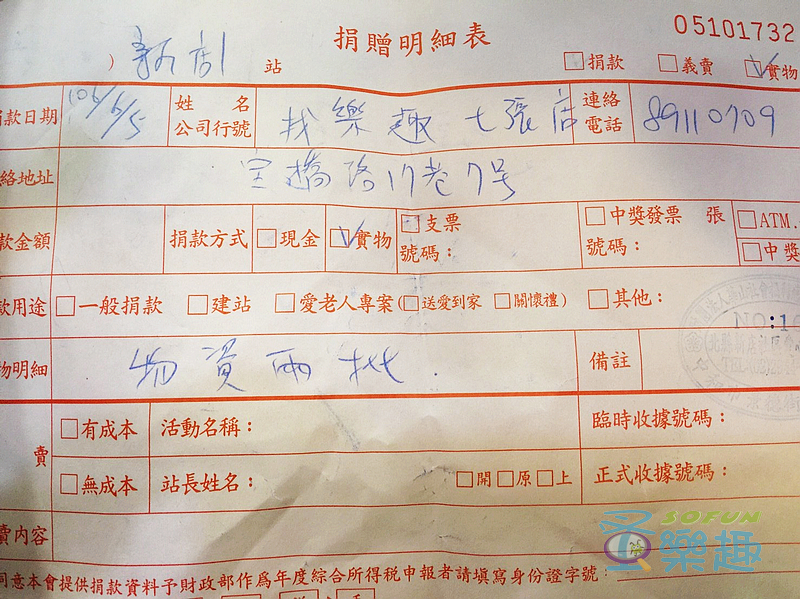 捐贈明細表 05101732
) 新店 站 □捐款 □義賣 ☑實物
捐款日期 106/6/5 姓名 公司行號 找樂趣 七張店 連絡電話 89110709
絡地址 寶橋路17巷7号
款金額 捐款方式 □現金 ☑實物 □支票 號碼： □中獎發票 張 號碼： □ATM. □中獎
款用途 □一般捐款 □建站 □愛老人專案(□送愛到家 □關懷禮) □其他：
NO:10
物明細 物資兩批. 備註
賣 □有成本 活動名稱： 臨時收據號碼：
□無成本 站長姓名： □開□原□上 正式收據號碼：
賣內容
SOFUN
樂趣
同意本會提供捐款資料予財政部作為年度綜合所得稅申報者請填寫身份證字號：